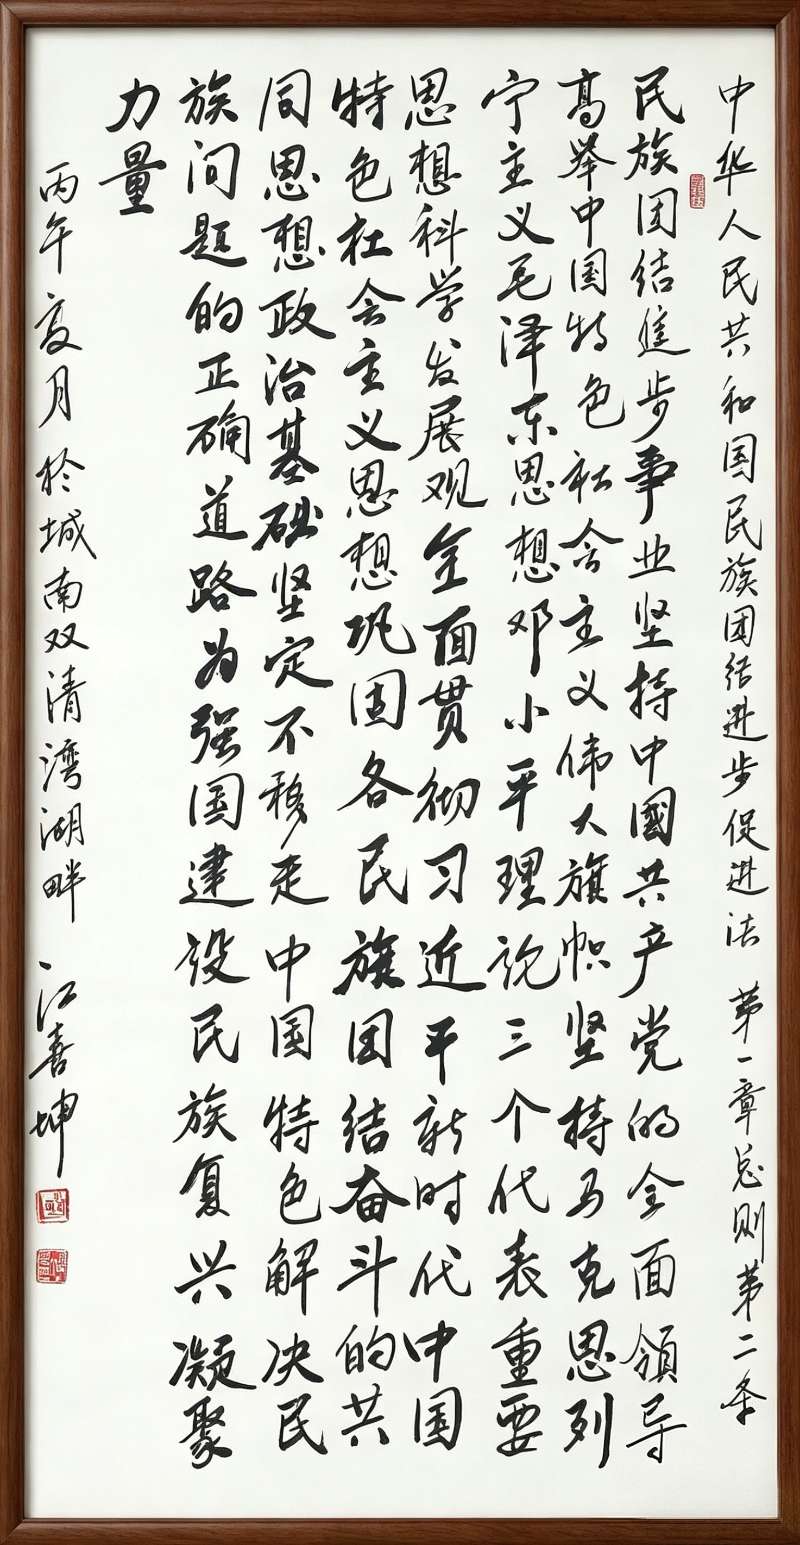 中华人民共和国民族团结进步促进法 第一章总则第二条
民族团结进步事业坚持中國共产党的全面领导
高举中国特色社会主义伟大旗帜坚持马克思列
宁主义毛泽东思想邓小平理论三个代表重要
思想科学发展观全面贯彻习近平新时代中国
特色社会主义思想巩固各民族团结奋斗的共
同思想政治基础坚定不移走中国特色解决民
族问题的正确道路为强国建设民族复兴凝聚
力量
丙午夏月於城南双清湾湖畔 江喜坤